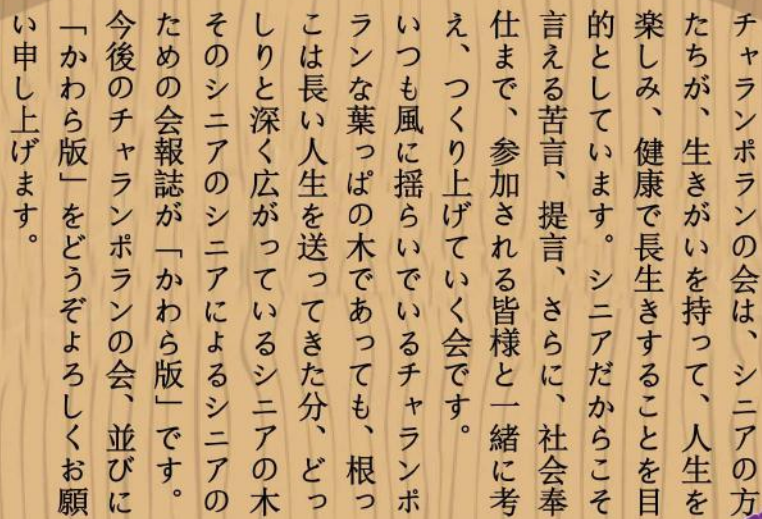 チャランポランの会は、シニアの方
たちが、生きがいを持って、人生を
楽しみ、健康で長生きすることを目
的としています。シニアだからこそ
言える苦言、提言、さらに、社会奉
仕まで、参加される皆様と一緒に考
え、つくり上げていく会です。
いつも風に揺らいでいるチャランポ
ランな葉っぱの木であっても、根っ
こは長い人生を送ってきた分、どっ
しりと深く広がっているシニアの木
そのシニアのシニアによるシニアの
ための会報誌が「かわら版」です。
今後のチャランポランの会、並びに
「かわら版」をどうぞよろしくお願
い申し上げます。